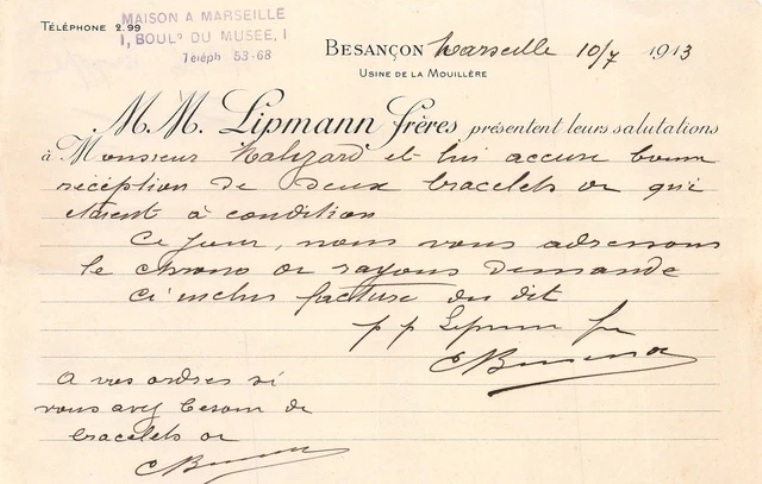 TÉLÉPHONE 2.99
MAISON A MARSEILLE
1, BOULD DU MUSEE, 1
Téléph 53-68
BESANÇON Marseille 10/7 1913
USINE DE LA MOUILLÈRE
M.M. Lipmann Frères présentent leurs salutations
à Monsieur et lui accuse bonne
réception de deux bracelets or qui
etaient à condition
Ce jour, nous vous adressons
le chrono or rayons demande
Ci inclus facture du dit
p p Lipmann fr
A vos ordres si
vous avez besoin de
bracelets or